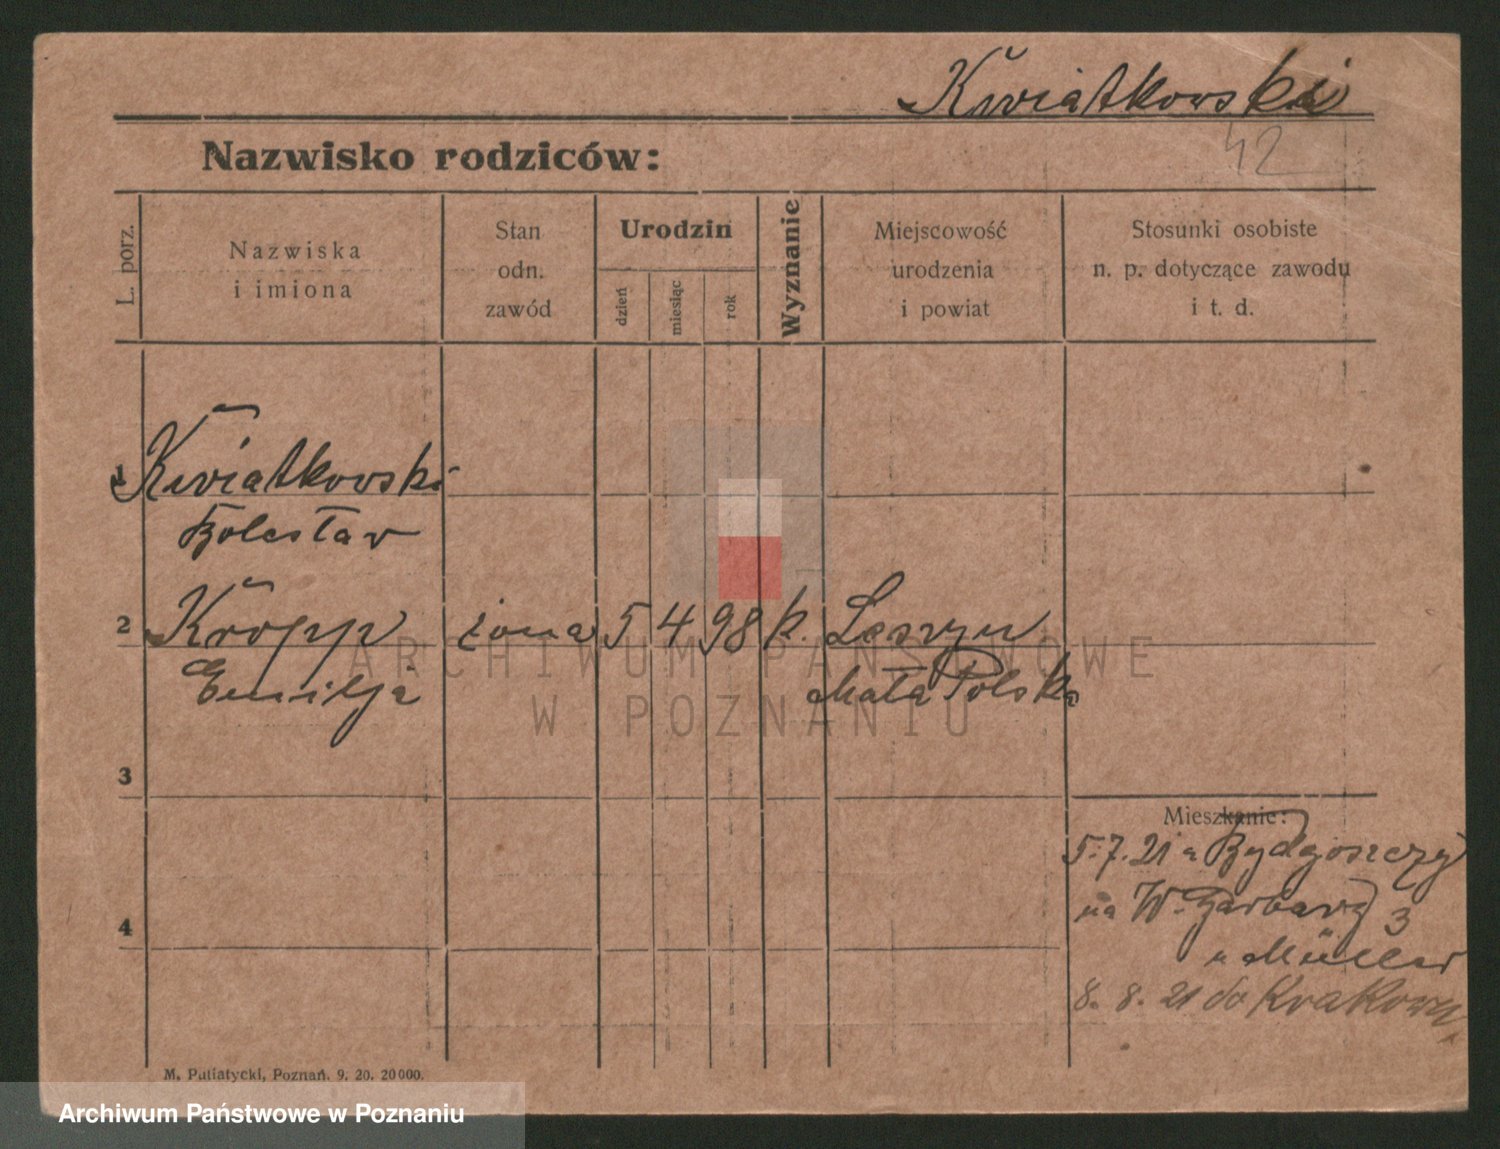 Kwiatkowski
42
Nazwisko rodziców:
L. porz.
Nazwiska
i imiona
Stan
odn.
zawód
Urodzin
dzień
miesiąc
rok
Wyznanie
Miejscowość
urodzenia
i powiat
Stosunki osobiste
n. p. dotyczące zawodu
i t. d.
1 Kwiatkowski
Bolesław
2 Kropp żona 5 4 98 k.
Emilja Mała Polska
ARCHIWUM PAŃSTWOWE
W POZNANIU
3
Mieszkanie:
5.7.21 z Bydgoszczy
na W. Garbary 3
u Müller
4
8. 8. 21 do Krakowa
M. Putiatycki, Poznań. 9. 20. 20000.
Archiwum Państwowe w Poznaniu